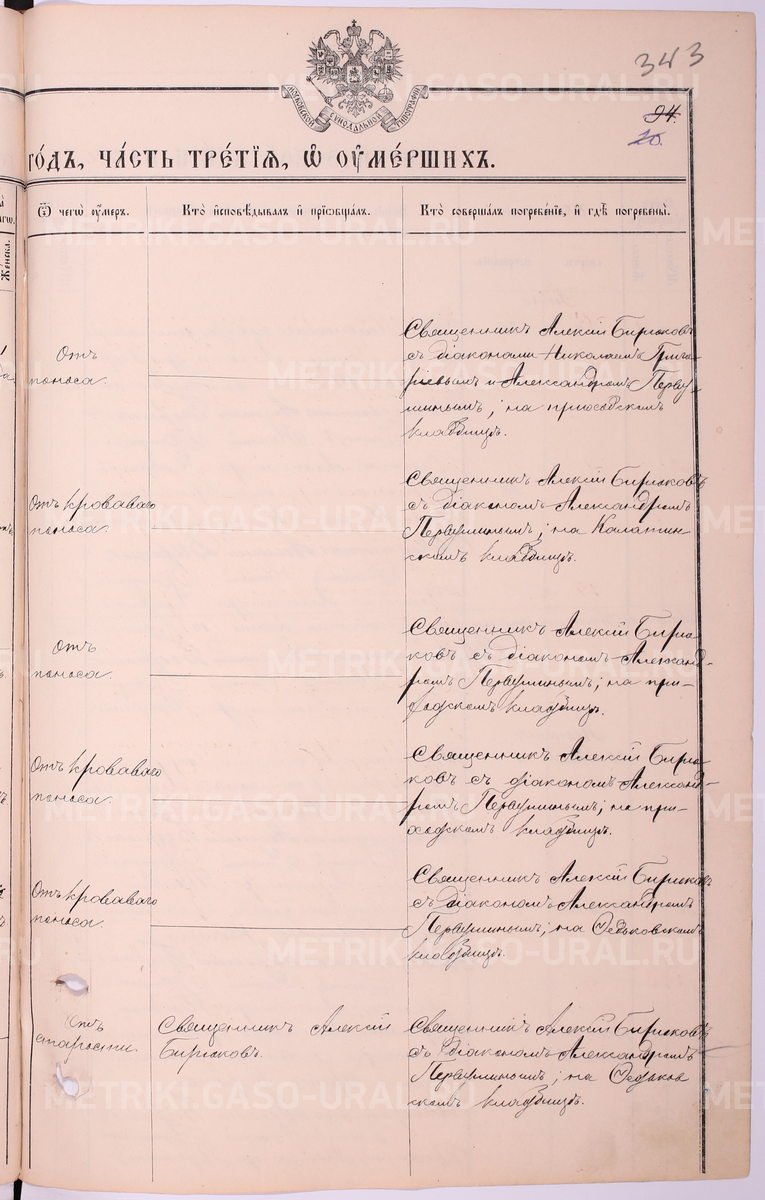 343
МОСКОВСКОЙ СѴНОДАЛЬНОЙ ТИПОГРАФІИ
24.
20.
го́дъ, ча́сть тре́тїѧ, ѡ҆ ᲂу҆ме́ршихъ.
Женска.
Ѿ чегѡ̀ ᲂу҆́меръ.
Кто̀ и҆сповѣ́дывалъ и҆ прїѻбща́лъ.
Кто̀ соверша́лъ погребе́нїе, и҆ гдѣ̀ погребены̀.
Отъ
поноса.
Священникъ Алексій Бирюковъ
съ діаконами Николаемъ Григо-
ріевымъ и Александромъ Перву-
шинымъ; на приходскомъ
кладбищѣ.
Отъ кроваваго
поноса.
Священникъ Алексій Бирюковъ
съ діакономъ Александромъ
Первушинымъ; на Калатин-
скомъ кладбищѣ.
Отъ
поноса.
Священникъ Алексій Бирю-
ковъ съ діакономъ Александ-
ромъ Первушинымъ; на при-
ходскомъ кладбищѣ.
Отъ кроваваго
поноса.
Священникъ Алексій Бирю-
ковъ съ діакономъ Александ-
ромъ Первушинымъ; на при-
ходскомъ кладбищѣ.
Отъ кроваваго
поноса.
Священникъ Алексій Бирюковъ
съ діакономъ Александромъ
Первушинымъ; на Ѳедьковскомъ
кладбищѣ.
Отъ
старости.
Священникъ Алексій
Бирюковъ.
Священникъ Алексій Бирюковъ
съ діакономъ Александромъ
Первушинымъ; на Ѳедьков
скомъ кладбищѣ.
METRIKI.GASO-URAL.RU